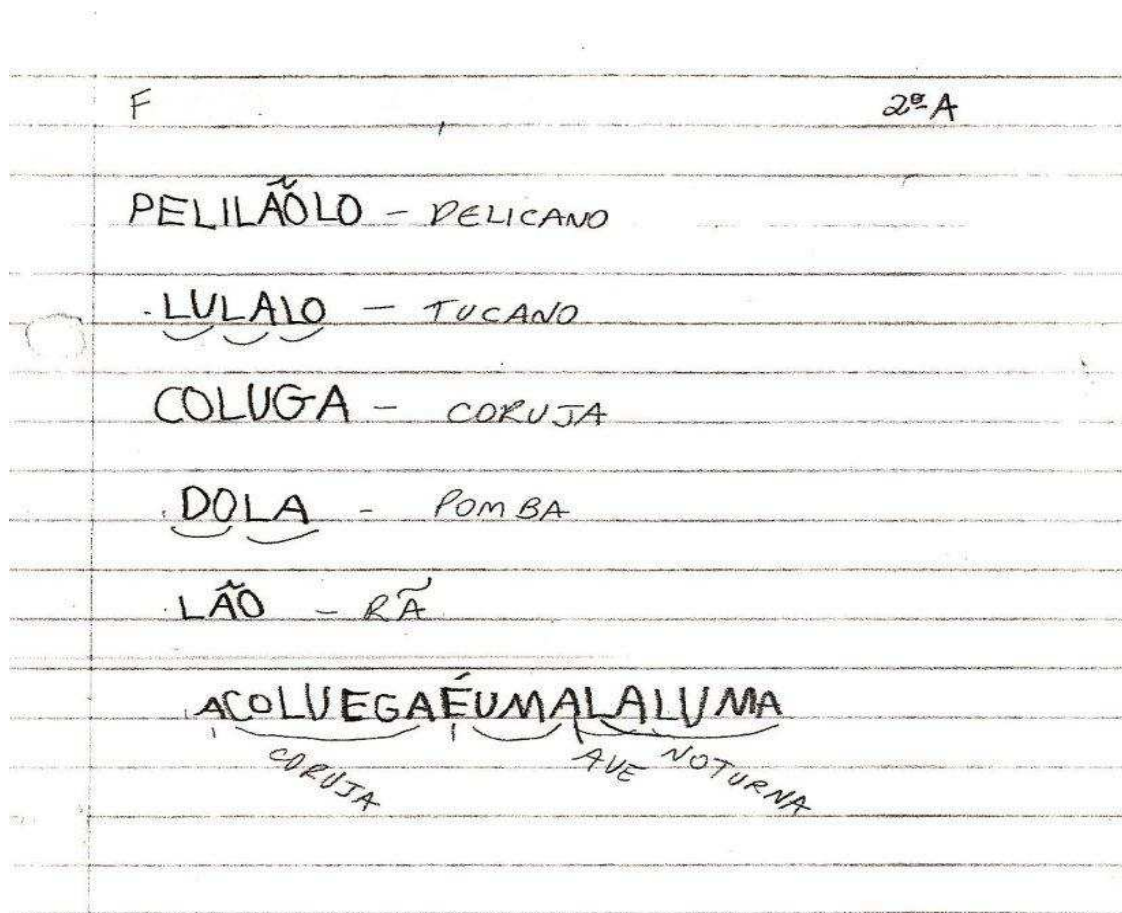 F 2º A
PELILÃOLO - PELICANO
LULALO - TUCANO
COLUGA - CORUJA
DOLA - POMBA
LÃO - RÃ
ACOLUEGAÉUMALALUMA
CORUJA AVE NOTURNA